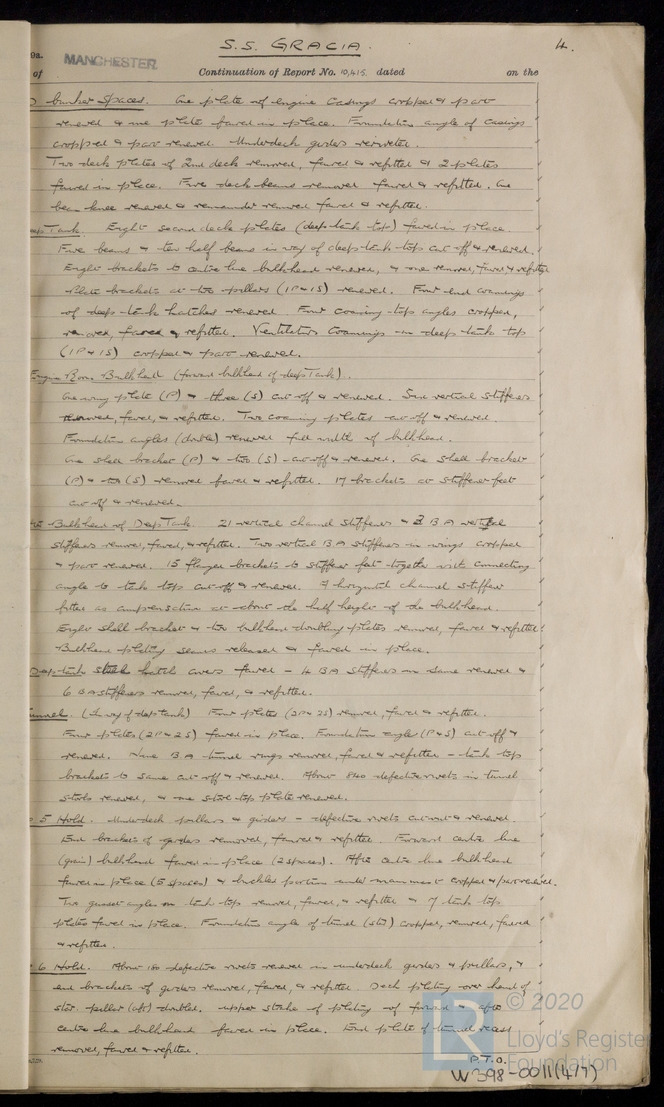 S.S. GRACIA.
4.
9a.
MANCHESTER
of
Continuation of Report No. 10,415. dated on the
bunker Spaces. One plate of engine Casings cropped & part
renewed & one plate faired in place. Foundation angle of casings
cropped & part renewed. Underdeck girders reriveted.
Two deck plates of 2nd deck removed, faired & refitted & 2 plates
faired in place. Five deck beams removed faired & refitted. One
beam knee renewed & remainder removed faired & refitted.
Tank. Eight second deck plates (deep tank top) faired in place
Five beams & ten half beams in way of deep tank top cut off & renewed.
Eight brackets to centre line bulkhead renewed, & one removed, faired & refitted
Plate brackets at two pillars (1P & 1S) renewed. Four end coamings
of deep tank hatches renewed. Four coaming top angles cropped,
removed, faired & refitted. Ventilators Coamings on deep tank top
(1P & 1S) cropped & part renewed.
Engine Rm. Bulkhead (forward bulkhead of deep Tank).
One wing plate (P) & three (S) cut off & renewed. Six vertical stiffeners
removed, faired, & refitted. Two coaming plates cut off & renewed.
Foundation angles (double) renewed full width of bulkhead.
One shell bracket (P) & two (S) cut off & renewed. One shell bracket
(P) & two (S) removed faired & refitted. 17 brackets at stiffener feet
cut off & renewed.
Bulkhead of Deep Tank. 21 vertical channel stiffeners & 2 B A vertical
stiffeners removed, faired, & refitted. Two vertical B A stiffeners in wings cropped
& part renewed. 15 flanged brackets to stiffener feet together with connecting
angle to tank top cut off & renewed. A horizontal channel stiffener
fitted as compensation at about the half height of the bulkhead.
Eight shell brackets & two bulkhead doubling plates removed, faired & refitted
Bulkhead plating seams released & faired in place.
Deep tank hatch covers faired - 14 BA stiffeners on same renewed &
6 BA stiffeners removed, faired, & refitted.
(In way of deep tank) Four plates (2P & 2S) removed, faired & refitted.
Four plates (2P & 2S) faired in place. Foundation angle (P & S) cut off &
renewed. Nine B A tunnel rings removed, faired & refitted - tank top
brackets to same cut off & renewed. About 840 defective rivets in tunnel
stools renewed, & one stool top plate renewed.
5 Hold. Underdeck pillars & girders - defective rivets cut out & renewed.
End brackets of girders removed, faired & refitted. Forward centre line
(grain) bulkhead faired in place (2 spaces). After centre line bulkhead
faired in place (5 spaces) & buckled portion under mainmast cropped & part renewed.
Two gusset angles on tank top removed, faired, & refitted & 7 tank top
plates faired in place. Foundation angle of tunnel (stbd) cropped, removed, faired
& refitted.
6 Hold. About 180 defective rivets renewed in underdeck girders & pillars, &
end brackets of girders removed, faired, & refitted. Deck plating over head of
stbd. pillar (aft) doubled. Upper strake of plating of forward & after
centre line bulkhead faired in place. End plate of tunnel recess
removed, faired & refitted.
P.T.O.
W398-0011(4/7)
LR
© 2020
Lloyd's Register
Foundation